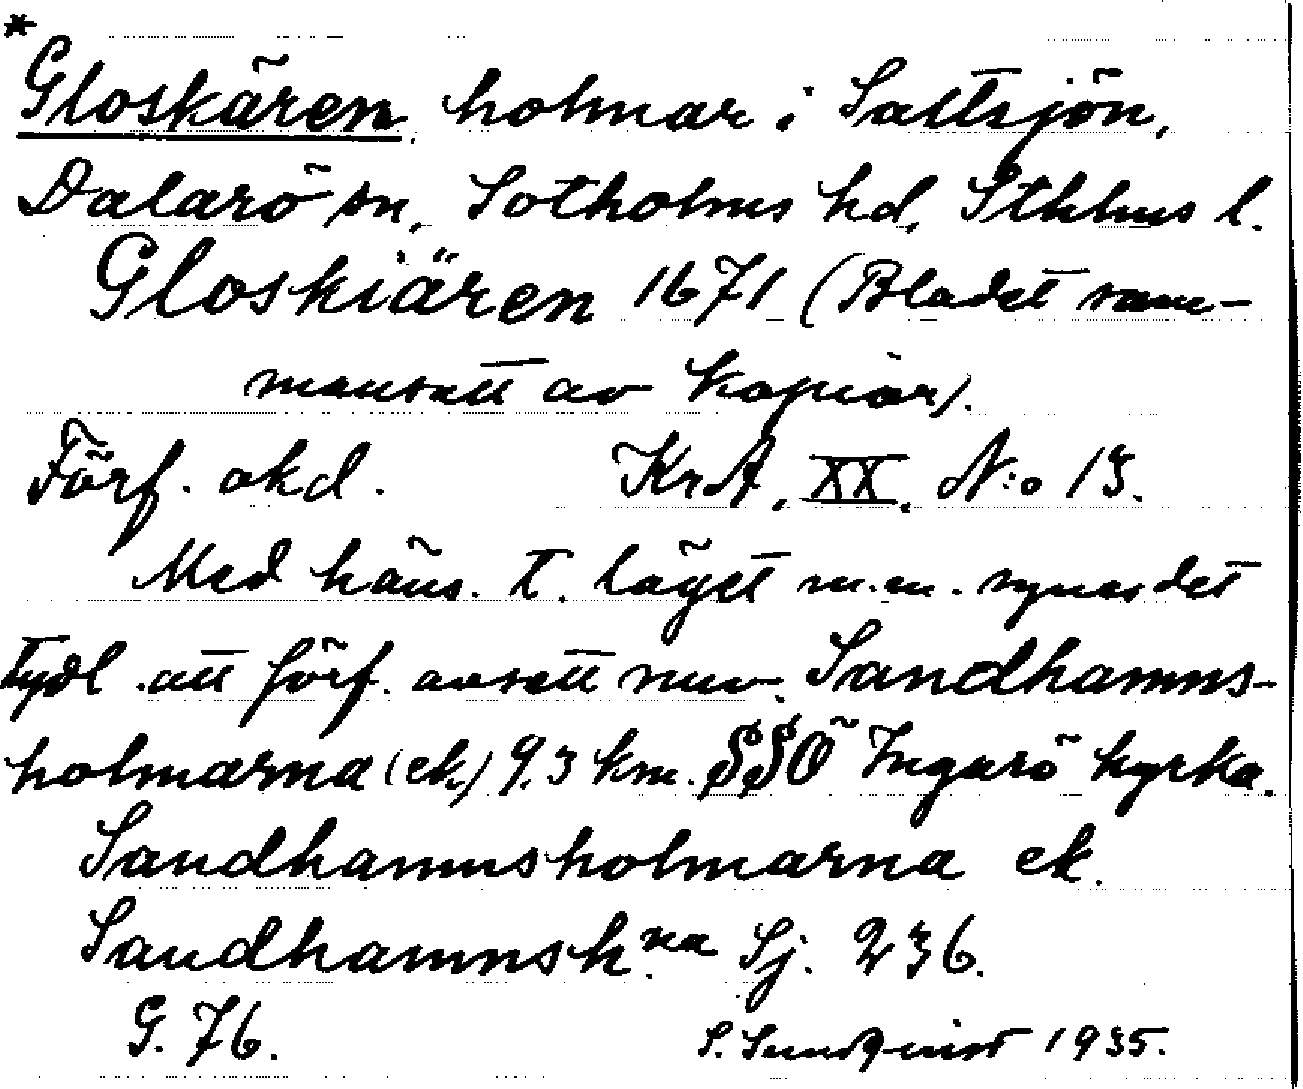 * Gloskären, holmar i Saltsjön,
Dalarö sn, Sotholms hd, Sthlms l.
Gloskiären 1671 (Bladet sam-
mansatt av kopior).
Förf. okd. KrA, XX, N:o 13.
Med häns. t. läget m.m. synes det
tydl. att förf. avsett nuv. Sandhamns-
holmarna (ek.) 9,3 km. SSÖ Ingarö kyrka.
Sandhamnsholmarna ek.
Sandhamnsh.na Sj. 236.
G. 76. S. Sundqvist 1935.